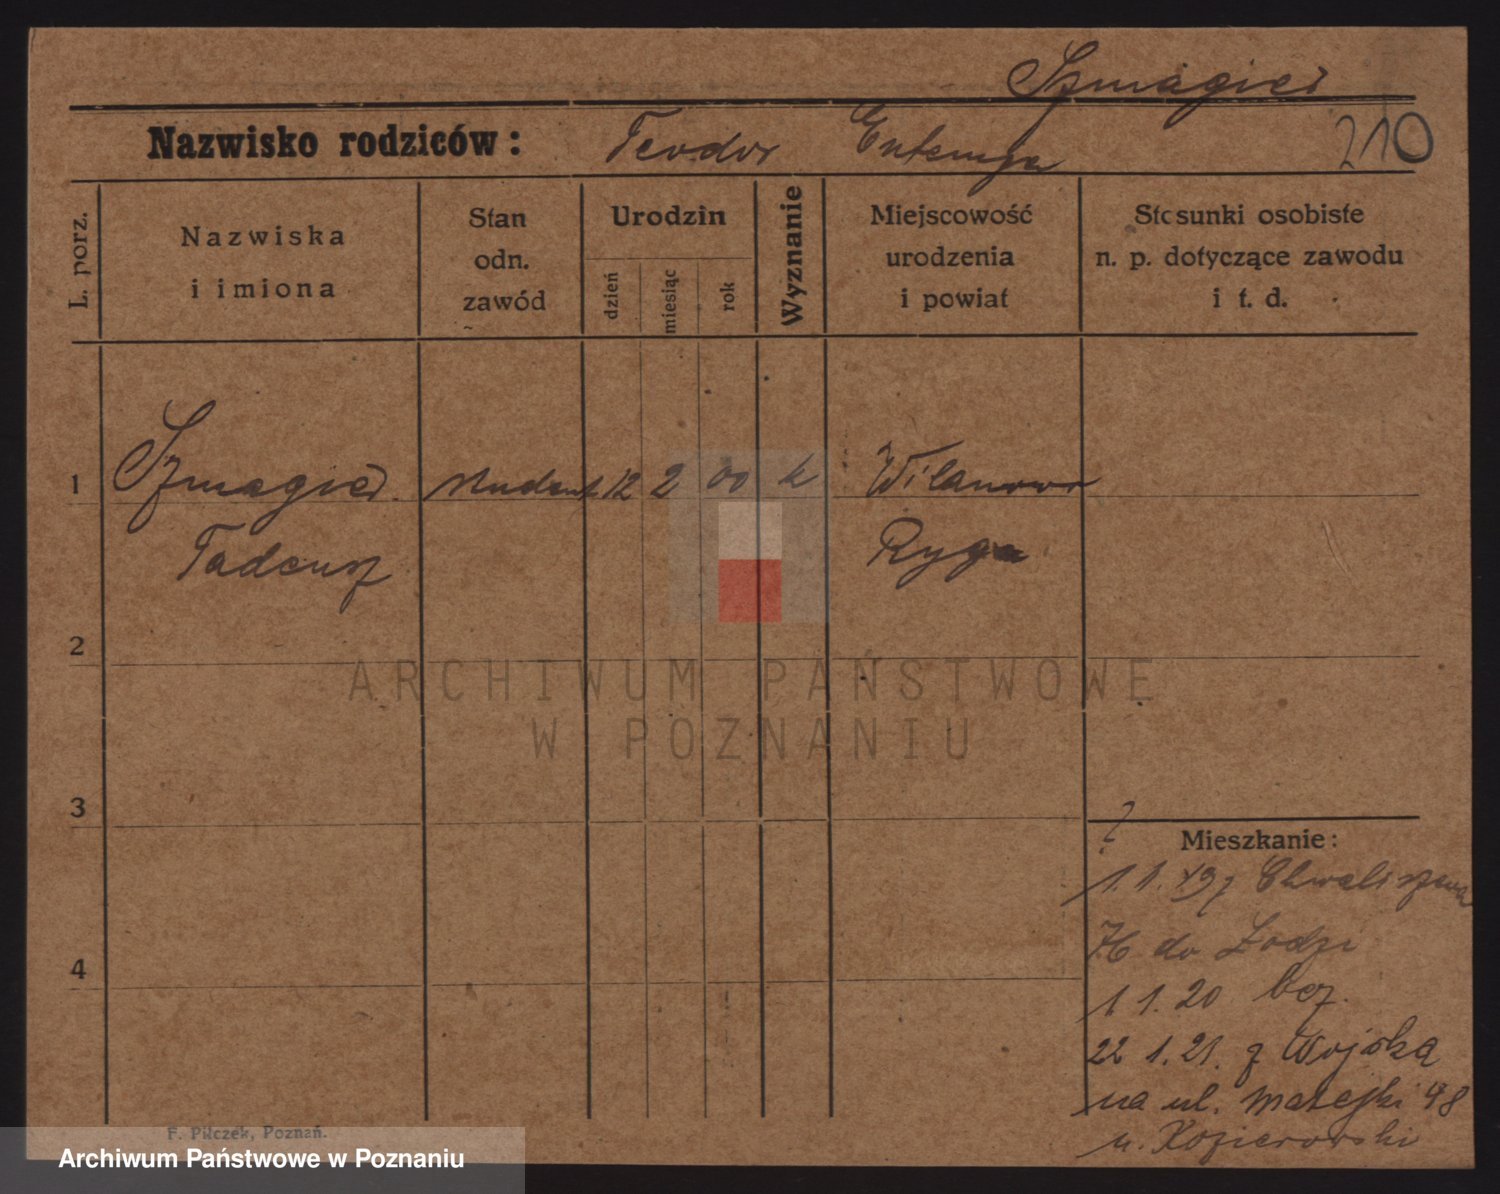 Szmagier
Nazwisko rodziców: Teodor
210
L. porz.
Nazwiska
i imiona
Stan
odn.
zawód
Urodzin
dzień
miesiąc
rok
Wyznanie
Miejscowość
urodzenia
i powiat
Stosunki osobiste
n. p. dotyczące zawodu
i t. d.
1 Szmagier student 12 2 00 k Wilanowo
Tadeusz Ryga
2
ARCHIWUM PAŃSTWOWE
W POZNANIU
3
?
Mieszkanie:
1.1. Chwaliszewo
76 do Łodzi
4
1 1. 20 bez.
22 1. 21. z Wojska
na ul. Matejki 48
u. Kozierowski
F. Pilczek, Poznań.
Archiwum Państwowe w Poznaniu